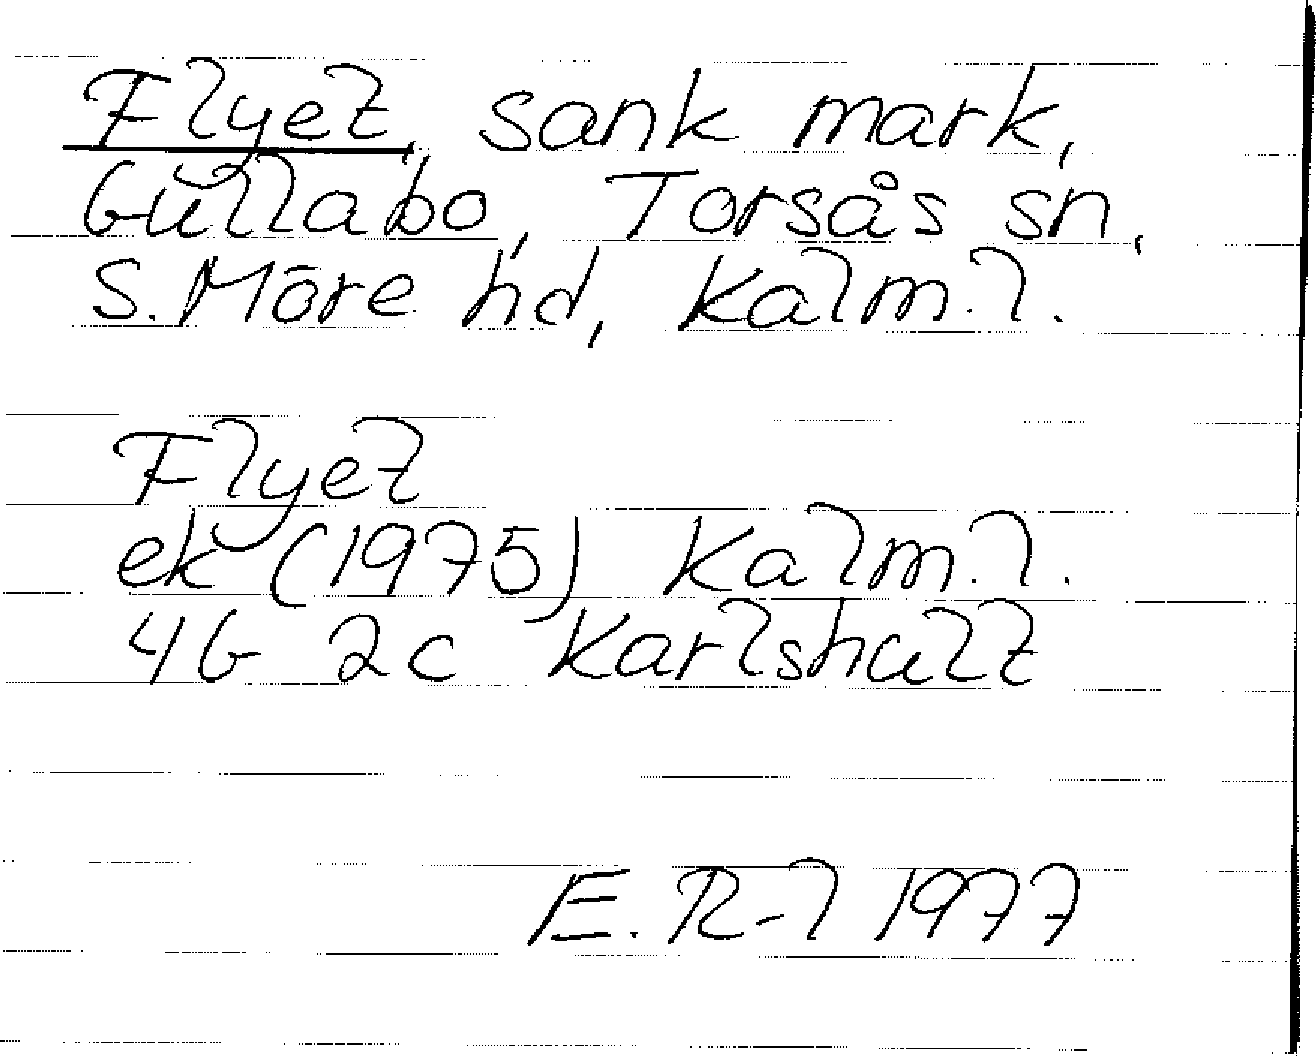 Flyet, sank mark,
Gullabo, Torsås sn,
S. Möre hd, Kalm. l.
Flyet
ek (1975) Kalm. l.
4G 2c Karlshult
E. R-l 1977